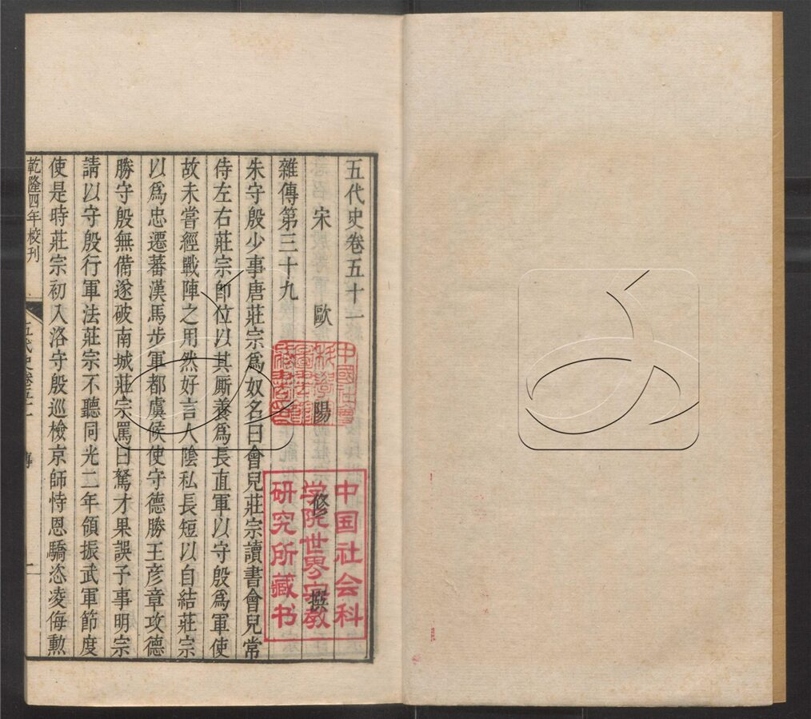 五代史卷五十一
宋 歐陽 修 撰
雜傳第三十九
朱守殷少事唐莊宗爲奴名曰會兒莊宗讀書會兒常
侍左右莊宗卽位以其厮養爲長直軍以守殷爲軍使
故未嘗經戰陣之用然好言人陰私長短以自結莊宗
以爲忠遷蕃漢馬步軍都虞候使守德勝王彥章攻德
勝守殷無備遂破南城莊宗罵曰駑才果誤予事明宗
請以守殷行軍法莊宗不聽同光二年領振武軍節度
使是時莊宗初入洛守殷巡檢京師恃恩驕恣凌侮勲
乾隆四年校刊
五代史卷五十一 傳 一
中国社会科
学院世界宗教
研究所藏书